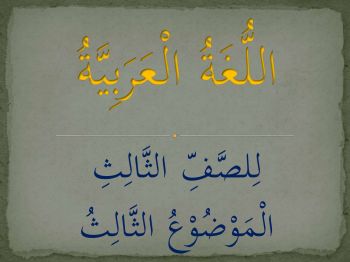 اللُّغَةُ الْعَرَبِيَّةُ
لِلصَّفِّ الثَّالِثِ
الْمَوْضُوْعُ الثَّالِثُ